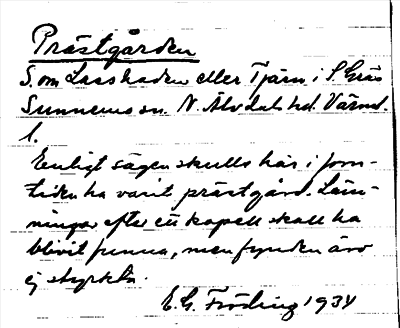 Prästgården
S. om Lasshaden eller Tjärn i S. Gräs
Sunnemo sn. N. Älvdals hd. Värml.
l.
Enligt sägen skulle här i forn-
tiden ha varit prästgård. Läm-
ningar efter ett kapell skall ha
blivit funna, men fynden äro
ej styrkta.
E. G. Fröding 1934